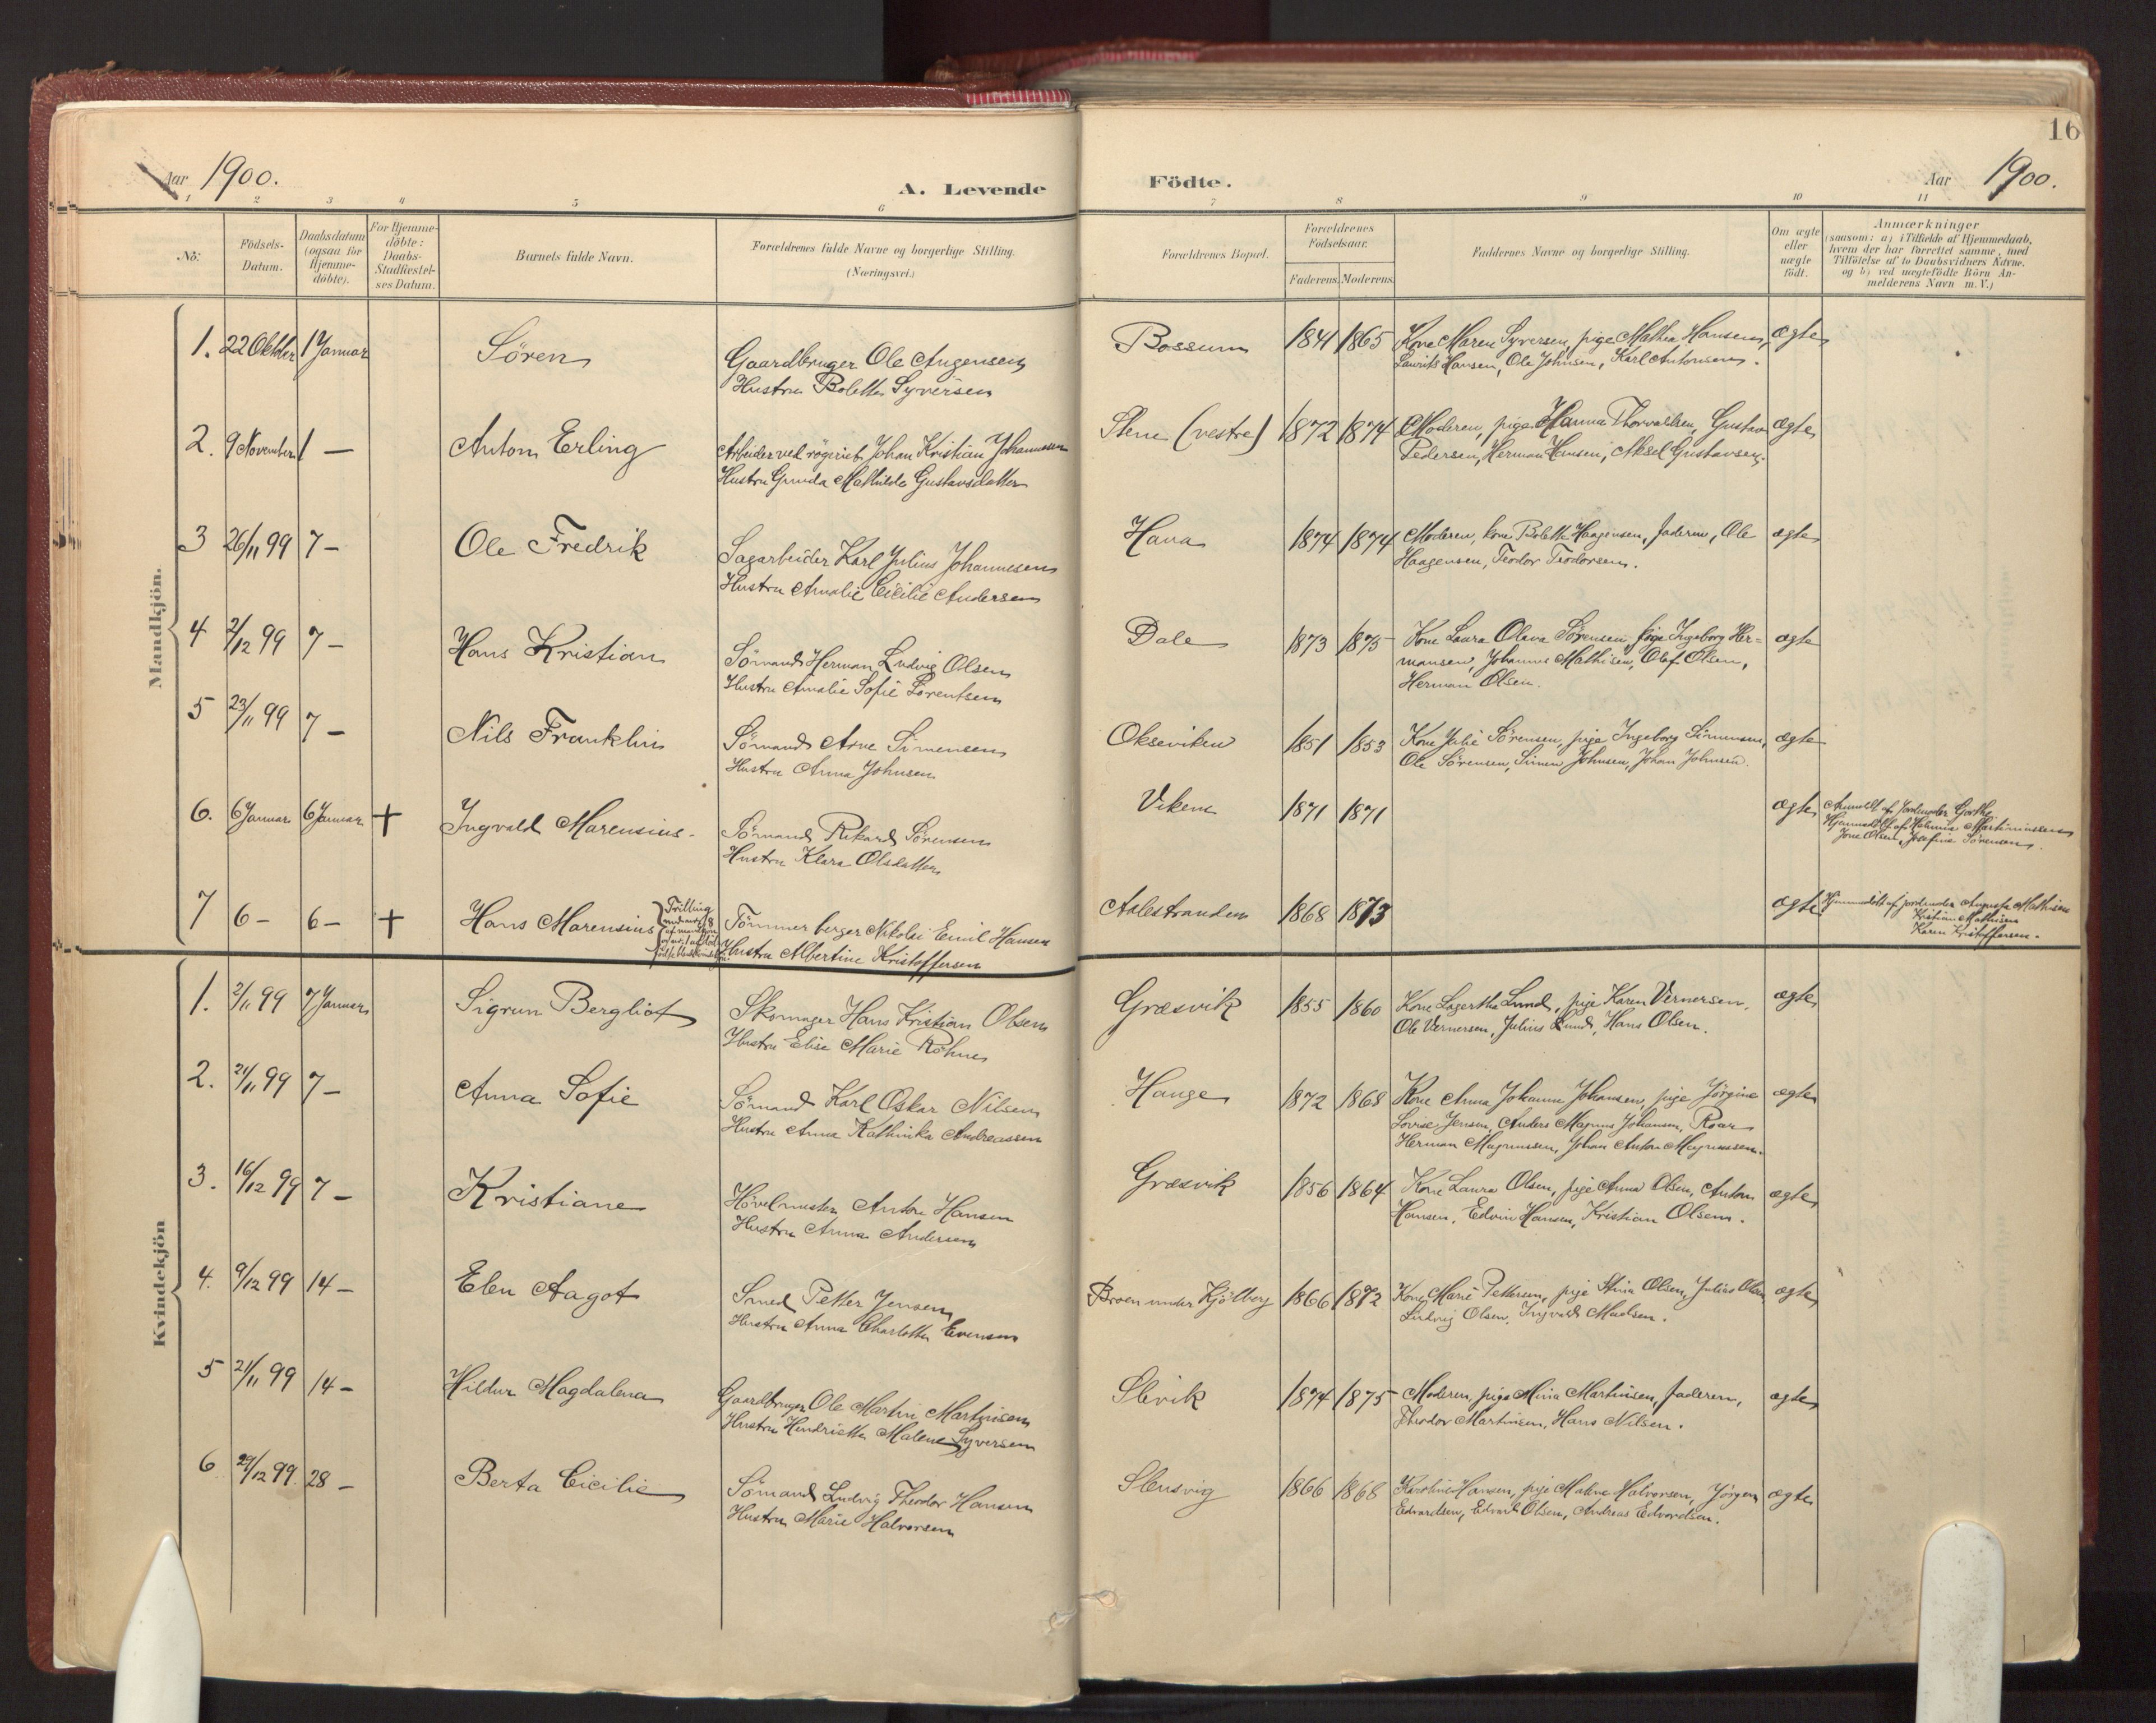 16
Aar 1900.
A. Levende Födte.
Aar 1900.
1 2 3 4 5 6 7 8 9 10 11
No:
Födsels-
Datum.
Daabsdatum
(ogsaa for
Hjemme-
döbte).
For Hjemme-
döbte:
Daabs-
Stadfæstel-
ses Datum.
Barnets fulde Navn.
Forældrenes fulde Navne og borgerlige Stilling.
(Næringsvei.)
Forældrenes Bopæl.
Forældrenes
Födselsaar.
Faderens. Moderens.
Faddernes Navne og borgerlige Stilling.
Om ægte
eller
uægte
födt.
Anmærkninger
(saasom: a) i Tilfælde af Hjemmedaab,
hvem der har forrettet samme, med
Tilföielse af to Daabsvidners Navne.
og b) ved uægtefödte Börn An-
melderens Navn m. V.)
Mandkjön.
1. 22 Oktober 1 Januar Sören
Gaardbruger Ole Augensen
Hustru Bolette Syversen
Bossum 1841 1865 Kone Maren Syversen, pige Mathea Hansen, ægte
Laurits Hansen, Ole Johnsen, Karl Antonsen.
2. 9 November 1 — Anton Erling
Arbeider ved Johan Kristian Johannessen
Hustru Gunda Mathilde Gustavsdatter
Stene (vestre) 1872 1874 Moderen, pige Hanna Thorvaldsen, Gustav ægte
Pedersen, Herman Hansen, Aksel Gustavsen.
3 26/11 99 7 — Ole Fredrik
Sagarbeider Karl Julius Johannesen
Hustru Amalie Cicilie Andersen
Hana 1874 1874 Moderen, kone Bolette Haagensen, faderen, Ole ægte
Haagensen, Teodor Teodorsen.
4 2/12 99 7 — Hans Kristian
Sömand Herman Ludvig Olsen
Hustru Amalie Sofie Lorentsen
Dale 1873 1875 Kone Laura Olava Sörensen, pige Ingeborg Her=
mansen, Johannes Mathisen, Olaf Olsen,
Herman Olsen.
ægte
5 23/11 99 7 — Nils Franklin
Sömand Arne Simensen
Hustru Anna Johnsen
Okseviken 1851 1853 Kone Julie Sörensen, pige Ingeborg Simensen, ægte
Ole Sörensen, Simen Johnsen, Johan Johnsen.
6. 6 Januar 6 Januar + Ingvald Marensius
Sömand Rikard Sörensen
Hustru Klara Olsdatter
Vikene 1871 1871 ægte Anmeldt af Jordmoder Grothe
Hjemmedöbt af Helmine Martiniussen
Jone Olsen, Josefine Sörensen.
7 6 — 6 — + Hans Marensius
Trilling
Tömmerberger Nikolai Emil Hansen
Hustru Albertine Kristoffersen
Aalestranden 1868 1873 ægte Hjemmedöbt af jordmoder Augusta Mathisen
Kristian Mathisen
Karen Kristoffersen.
Kvindekjön
1. 2/11 99 7 Januar Sigrun Bergliot
Skomager Hans Kristian Olsen
Hustru Elise Marie Röhne
Græsvik 1855 1860 Kone Lagertha Lund, pige Karen Vernersen, ægte
Ole Vernersen, Julius Lund, Hans Olsen.
2. 21/11 99 7 — Anna Sofie
Sömand Karl Oskar Nilsen
Hustru Anna Kathinka Andreassen
Hauge 1872 1868 Kone Anna Johanne Johansen, pige Jörgine ægte
Lovise Jensen, Anders Magnus Johansen, Roar
Herman Magnussen, Johan Anton Magnussen.
3. 16/12 99 7 — Kristiane
Hövelmester Anton Hansen
Hustru Anna Andersen
Græsvik 1856 1864 Kone Laura Olsen, pige Anna Olsen, Anton ægte
Hansen, Edvin Hansen, Kristian Olsen.
4. 9/12 99 14 — Elen Aagot
Smed Petter Jensen
Hustru Anna Charlotte Evensen
Broen under Kjölberg 1866 1872 Kone Marie Pettersen, pige Stina Olsen, Julius Olsen ægte
Ludvig Olsen, Ingvald Madsen.
5 21/11 99 14 — Hildur Magdalena
Gaardbruger Ole Martin Martinsen
Hustru Hendriette Malene Syversen
Slevik 1874 1875 Moderen, pige Mina Martinsen, faderen, ægte
Theodor Martinsen, Hans Nilsen.
6 29/12 99. 28 — Berta Cicilie
Sömand Ludvig Theodor Hansen
Hustru Marie Halvorsen
Slensvig 1866 1868 Karoline Hansen, pige Malene Halvorsen, Jörgen ægte
Edvardsen, Edvard Olsen, Andreas Edvardsen.